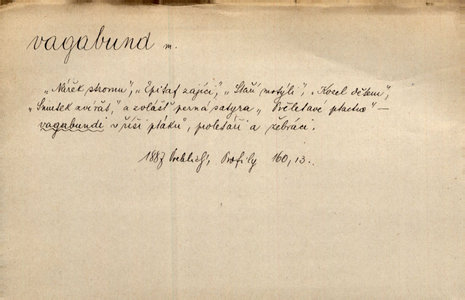 vagabund m.
„Nářek stromu", „Epitaf zajíci", „Staří motýli", „Kocel dětem",
„Smutek zvířat," a zvlášť perná satyra „Přeletavé ptactvo" —
vagabundi v říši ptáků, proletáři a žebráci.
1887 Vrchlický, Profily 160, 13.